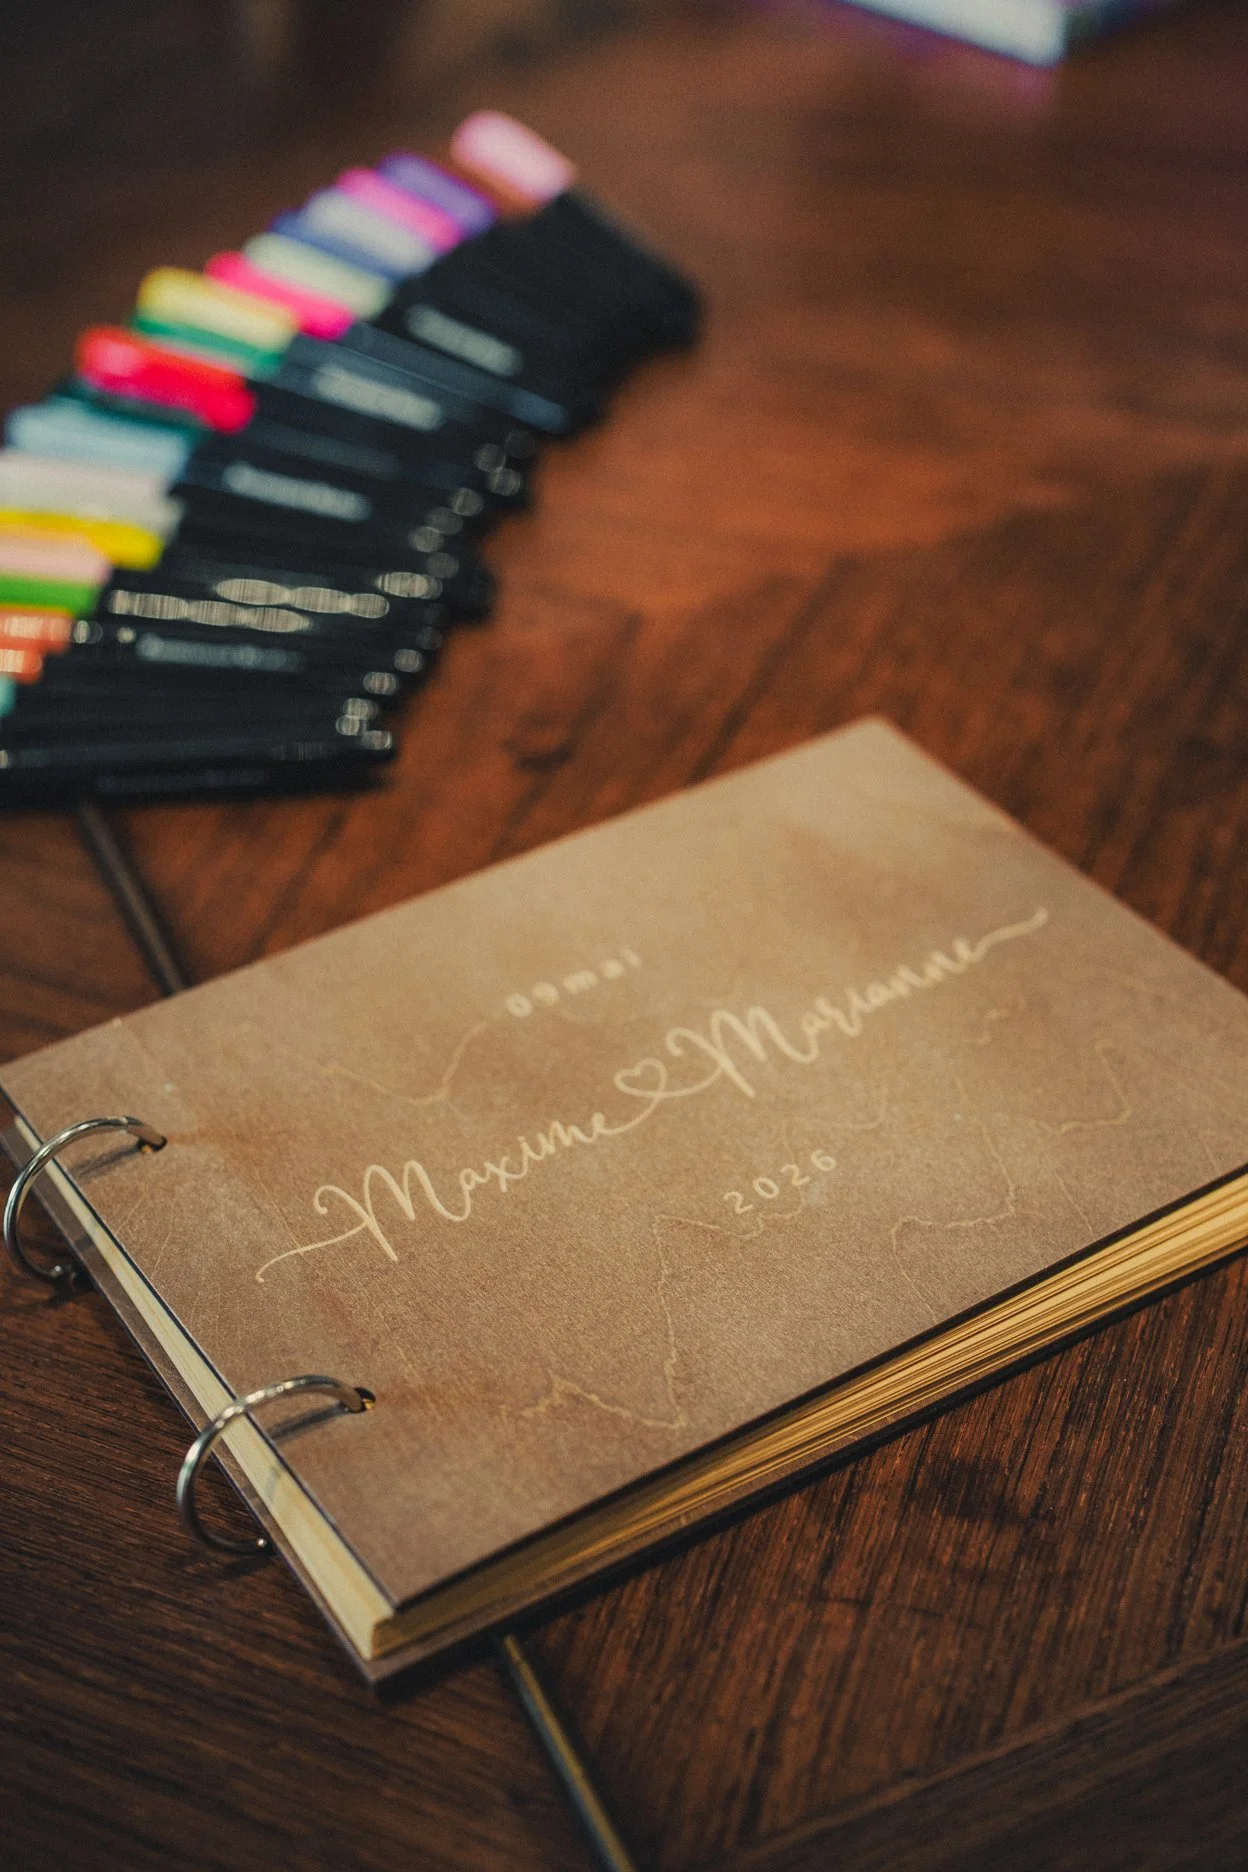 09 mai
Maxime Marianne
2026